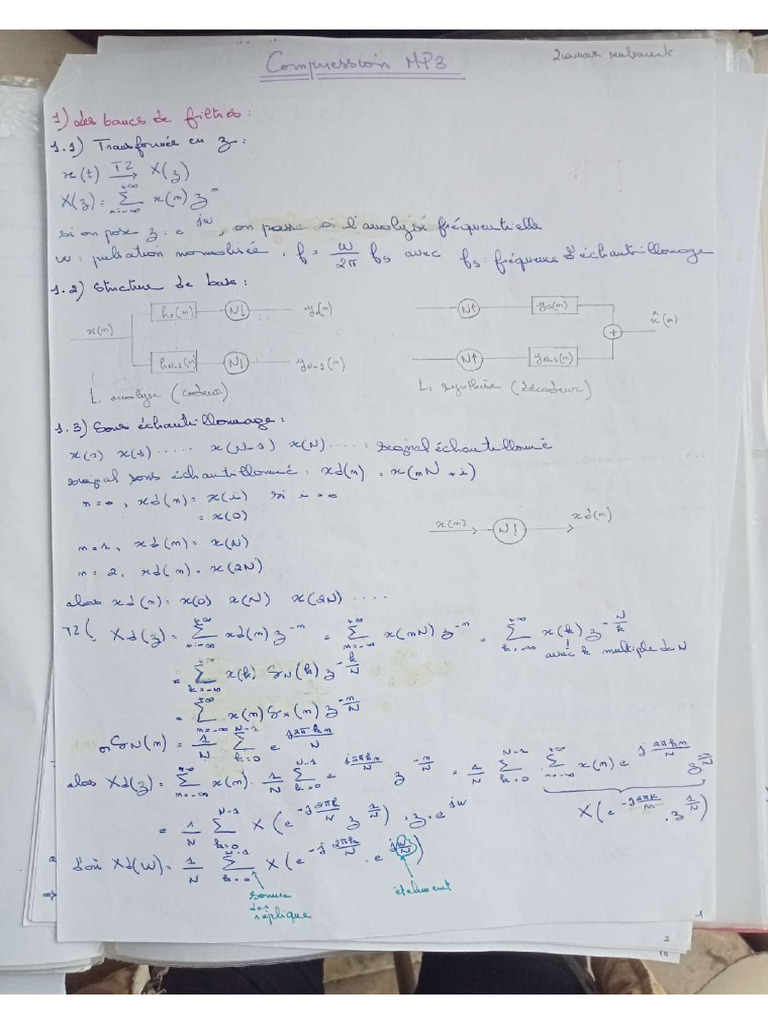 Compression MP3
1) Les bancs de filtres :
1.1) Transformée en z :
x(t) —TZ→ X(z)
X(z) = Σ_{n=-∞}^{+∞} x(n) z^n
si on pose z = e^{jw}, on passe à l'analyse fréquentielle
w : pulsation normalisée, f = w/2π fs avec fs : fréquence d'échantillonnage
1.2) Structure de base :
h0(n) N↓ y0(n) N↑ g0(n)
x(n) + x̂(n)
hN-1(n) N↓ yN-1(n) N↑ gN-1(n)
L. analyse (codeur) L. synthèse (décodeur)
1.3) Sous échantillonnage :
x(0) x(1) ..... x(N-1) x(N) ..... : signal échantillonné
signal sous échantillonné : xd(n) = x(nN + i)
n=0, xd(n) = x(i) si i=0
= x(0)
x(n) → N↓ → xd(n)
n=1, xd(n) = x(N)
n=2, xd(n) = x(2N)
alors xd(n) = x(0) x(N) x(2N) ....
TZ ( Xd(z) = Σ_{n=-∞}^{+∞} xd(n) z^{-n} = Σ_{n=-∞}^{+∞} x(nN) z^{-n} = Σ_{k=-∞}^{+∞} x(k) z^{-N/k}
avec k multiple de N
= Σ_{k=-∞}^{+∞} x(k) SN(k) z^{-k/N}
= Σ_{n=-∞}^{+∞} x(n) SN(n) z^{-n/N}
or SN(n) = 1/N Σ_{k=0}^{N-1} e^{j2πkn/N}
alors Xd(z) = Σ_{n=-∞}^{+∞} x(n) . 1/N Σ_{k=0}^{N-1} e^{j2πkn/N} z^{-n/N} = 1/N Σ_{k=0}^{N-1} Σ_{n=-∞}^{+∞} x(n) e^{j2πkn/N} z^{-n/N}
X(e^{-j2πk/N} . z^{1/N})
= 1/N Σ_{k=0}^{N-1} X(e^{-j2πk/N} z^{1/N}) , z = e^{jw}
d'où Xd(w) = 1/N Σ_{k=0}^{N-1} X(e^{-j2πk/N} . e^{jw/N})
somme des réplique
étalement